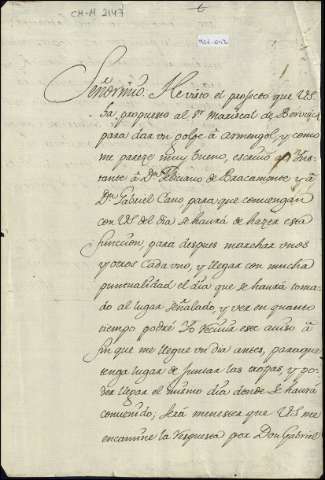 CA-M 2147
Señor mio. He visto el proiecto que VS
ha propuesto al Sr. Mariscal de
para dar un golpe à Armengol, y como
me pareze muy bueno, escriuo al Ins-
tante à Dn. Feliciano de Bracamonte y à
Dn. Gabriel Cano para que conuengan
con VS. del dia se haurà de hazer esta
funcion, para despues marchar unos
y otros cada uno, y llegar con mucha
puntualidad el dia que se haurà toma-
do al lugar señalado, y ver en quanto
tiempo podrè Yo recivir ese auiso à
fin que me llegue un dia antes, para que
tenga lugar de juntar las tropas, y po-
der llegar el mismo dia donde se haurà
conuenido; serà menester que VS me
encamine la respuesta por Don Gabriel